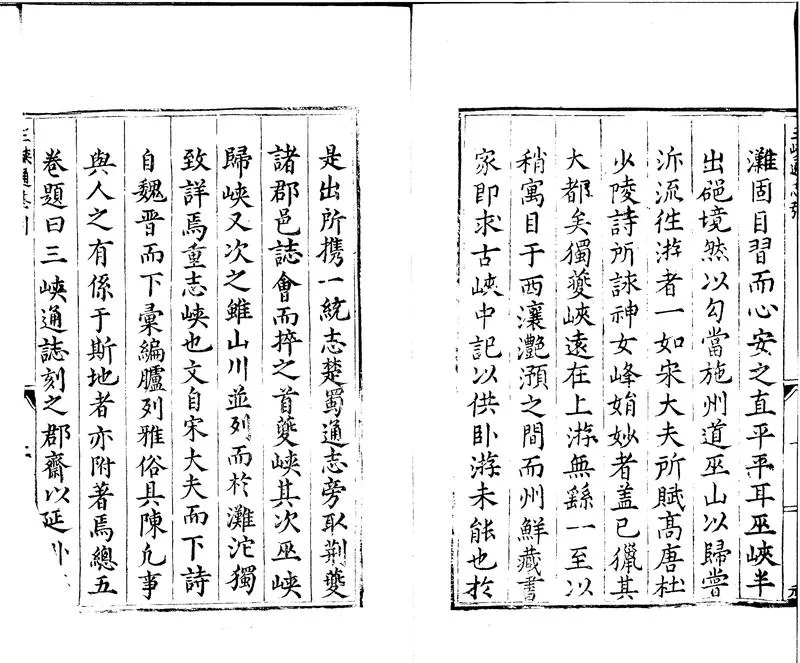 灘固目習而心安之直平平耳巫峽半
出磴境然以勾當施州道巫山以歸嘗
泝流徃游者一如宋大夫所賦髙唐杜
少陵詩所詠神女峰娟妙者盖已獵其
大都矣獨夔峽遠在上游無繇一至以
稍寓目于西瀼灔澦之間而州鮮藏書
家即求古峽中記以供卧游未能也於
是出所携一統志楚蜀通志旁取荆夔
諸郡邑誌會而捽之首夔峽其次巫峽
歸峽又次之雖山川並列而於灘沱獨
致詳焉重志峽也文自宋大夫而下詩
自魏晋而下彚編臚列雅俗具陳凢事
與人之有係于斯地者亦附著焉總五
卷題曰三峽通誌刻之郡齋以延
三峽通志